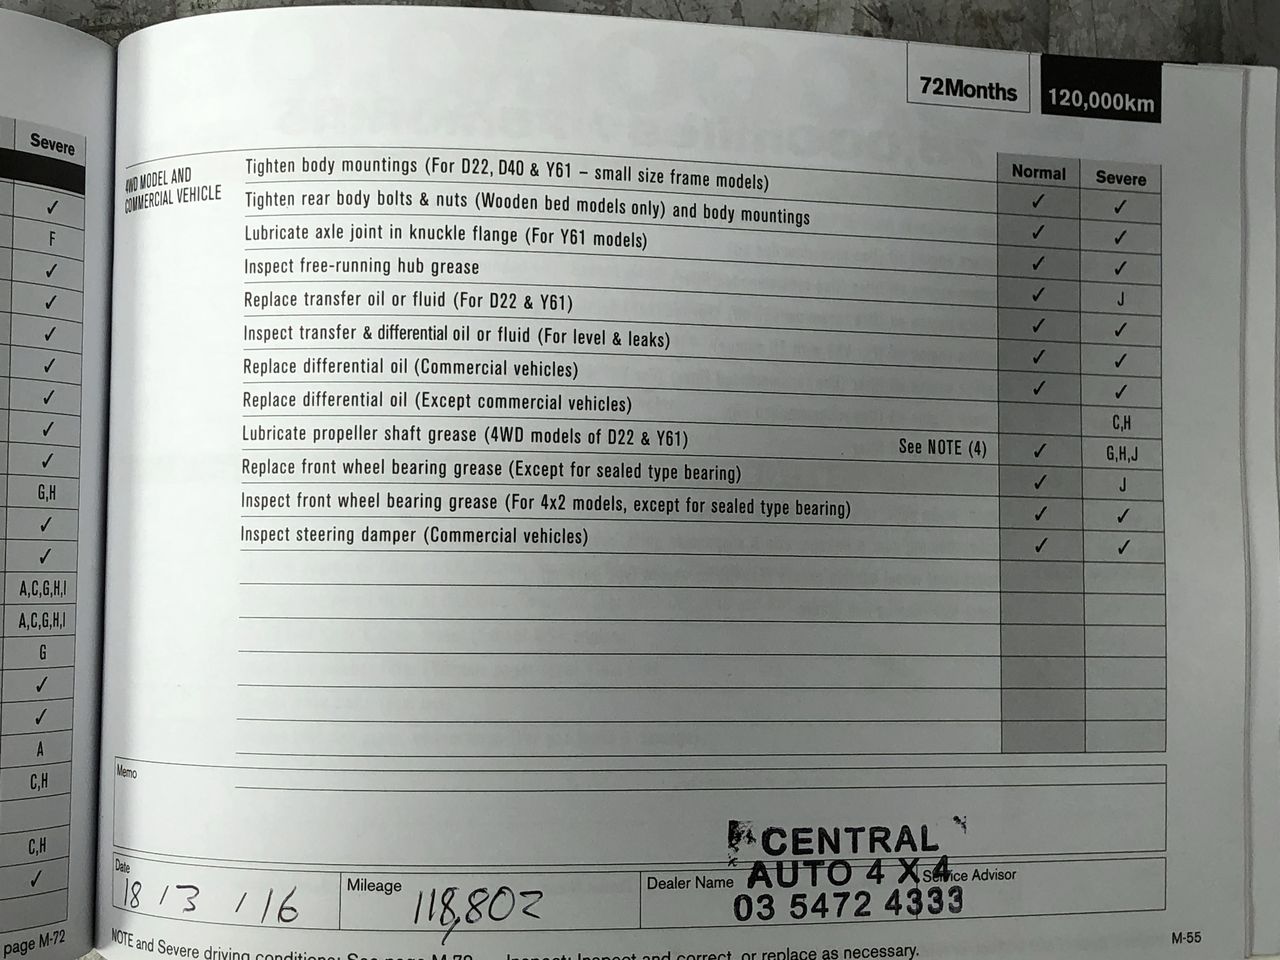 72Months 120,000km
Severe
✓
F
✓
✓
✓
✓
✓
✓
✓
G,H
✓
✓
A,C,G,H,I
A,C,G,H,I
G
✓
✓
A
C,H
C,H
✓
page M-72
4WD MODEL AND
COMMERCIAL VEHICLE
Normal Severe
Tighten body mountings (For D22, D40 & Y61 – small size frame models) ✓ ✓
Tighten rear body bolts & nuts (Wooden bed models only) and body mountings ✓ ✓
Lubricate axle joint in knuckle flange (For Y61 models) ✓ ✓
Inspect free-running hub grease ✓ J
Replace transfer oil or fluid (For D22 & Y61) ✓ ✓
Inspect transfer & differential oil or fluid (For level & leaks) ✓ ✓
Replace differential oil (Commercial vehicles) ✓ ✓
Replace differential oil (Except commercial vehicles) C,H
Lubricate propeller shaft grease (4WD models of D22 & Y61) See NOTE (4) ✓ G,H,J
Replace front wheel bearing grease (Except for sealed type bearing) ✓ J
Inspect front wheel bearing grease (For 4x2 models, except for sealed type bearing) ✓ ✓
Inspect steering damper (Commercial vehicles) ✓ ✓
Memo
CENTRAL
AUTO 4 X 4
03 5472 4333
Date 18 / 3 / 16
Mileage 118,802
Dealer Name
Service Advisor
NOTE and Severe driving conditions: See page M-72 Inspect: Inspect and correct or replace as necessary.
M-55